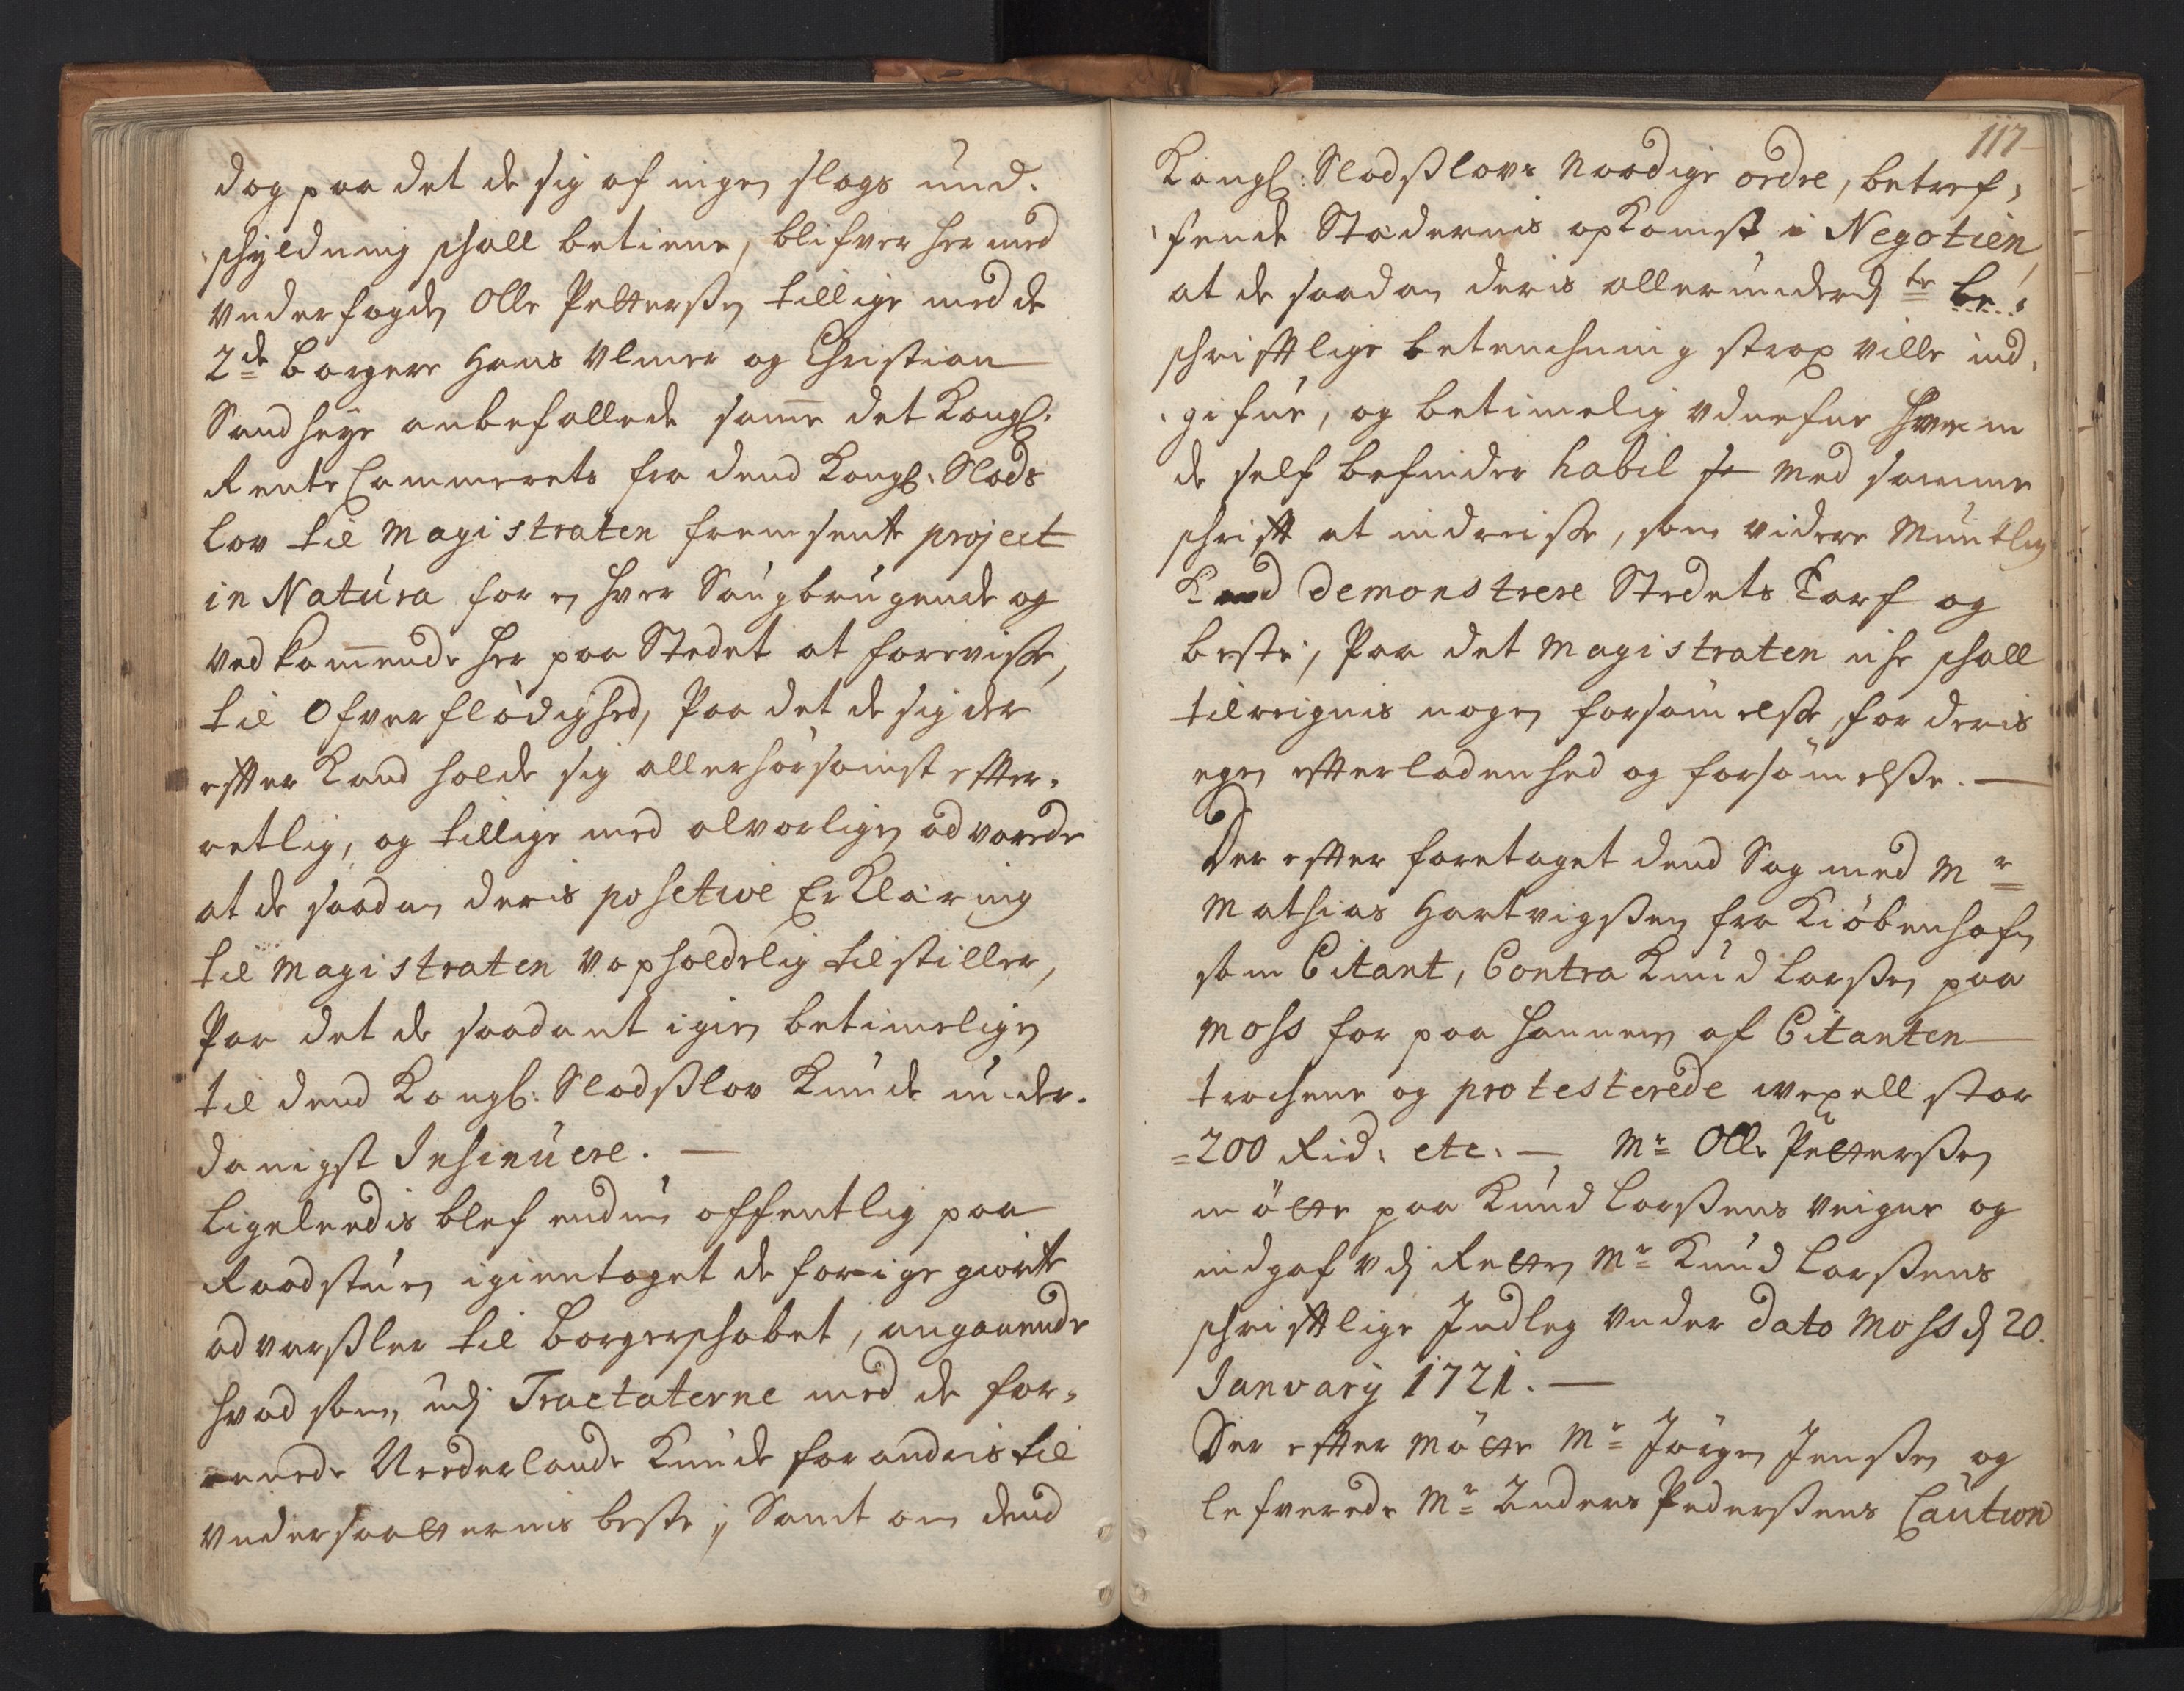 dog paa det de sig af ingen slags und-
skyldning skall betiene, blifver her med
Underfogden Olle Pettersen tillige med de
2de Borgere Hans Ulmer og Christian
Sandhøye anbefallede samme det Kongl:
Rente Cammerets fra dend Kongl: Slods
lov til Magistraten fremsente project
in Natura for en hver Saugbrugende og
Vedkommende her paa Stedet at forevisse,
til Ofverflødighed, Paa det de sig der
efter Kand holde sig allerhørsomst efter-
retlig, og tillige med alvorligen advarede
at de saadan deris posetive Erklæring
til Magistraten Uopholdelig tilstiller,
Paa det de saadant igien betimeligen
til dend Kongl: Slodsslov Kunde under-
danigst Insinuere. —
Ligeleedis blef endnu offentlig paa
Raadstuen igientaget de forige giorte
advarsler til Borgerskabet, angaaende
hvad som udj Tractaterne med de for-
eenede Neederlande Kunde forandris til
Undersaatternis beste, Samt om dend
117
Kongl: Slodsslovs Naadige ordre, betref-
fende Stædernis opkomst i Negotien,
at de saadan deris allerunderd: te be-
skrifttlige betenchning strax ville ind-
gifue, og betimelig udnefne hvem
de self befinder habil med samme
skrifft at indreisse, som videre Muntlig
Kand demonstrere Stedets Tarf og
beste, Paa det Magistraten iche skall
tilreignis nogen forsømelsse, for deris
egen efterladenhed og forsømelsse. —
Der efter foretaget dend Sag med Mr
Mathias Hartvigssen fra Kiøbenhafn
som Citant, Contra Knud Larssen paa
Moss for paa hannem af Citanten
trochene og protesterede wexell stor
=200 Rid: etc. — Mr Olle Petterssen
møtte paa Knud Larssens Veigne og
indgaf Udj Retten Mr Knud Larssens
skrifttlige Indleg Under dato Moss d 20.
Januarij 1721. —
Der efter Møtte Mr Jørgen Jenssen og
lefverede Mr Anders Pederssens Caution